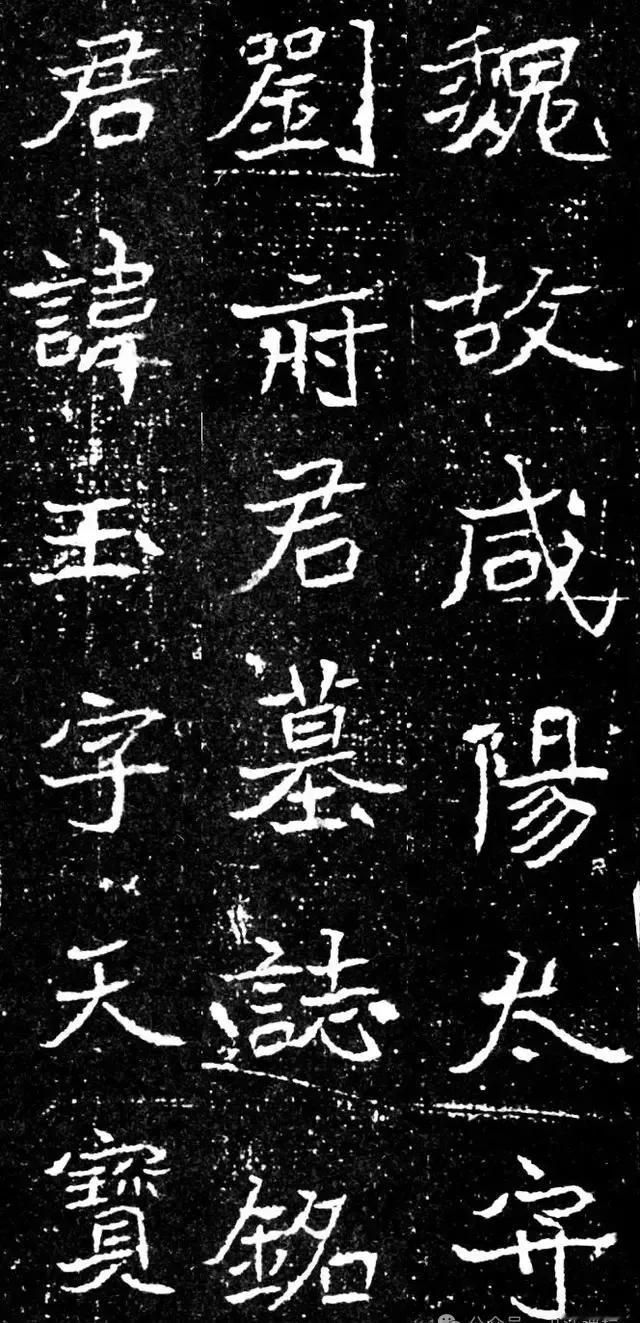 魏故咸陽太守
劉府君墓誌銘
君諱玉字天寶
公众号